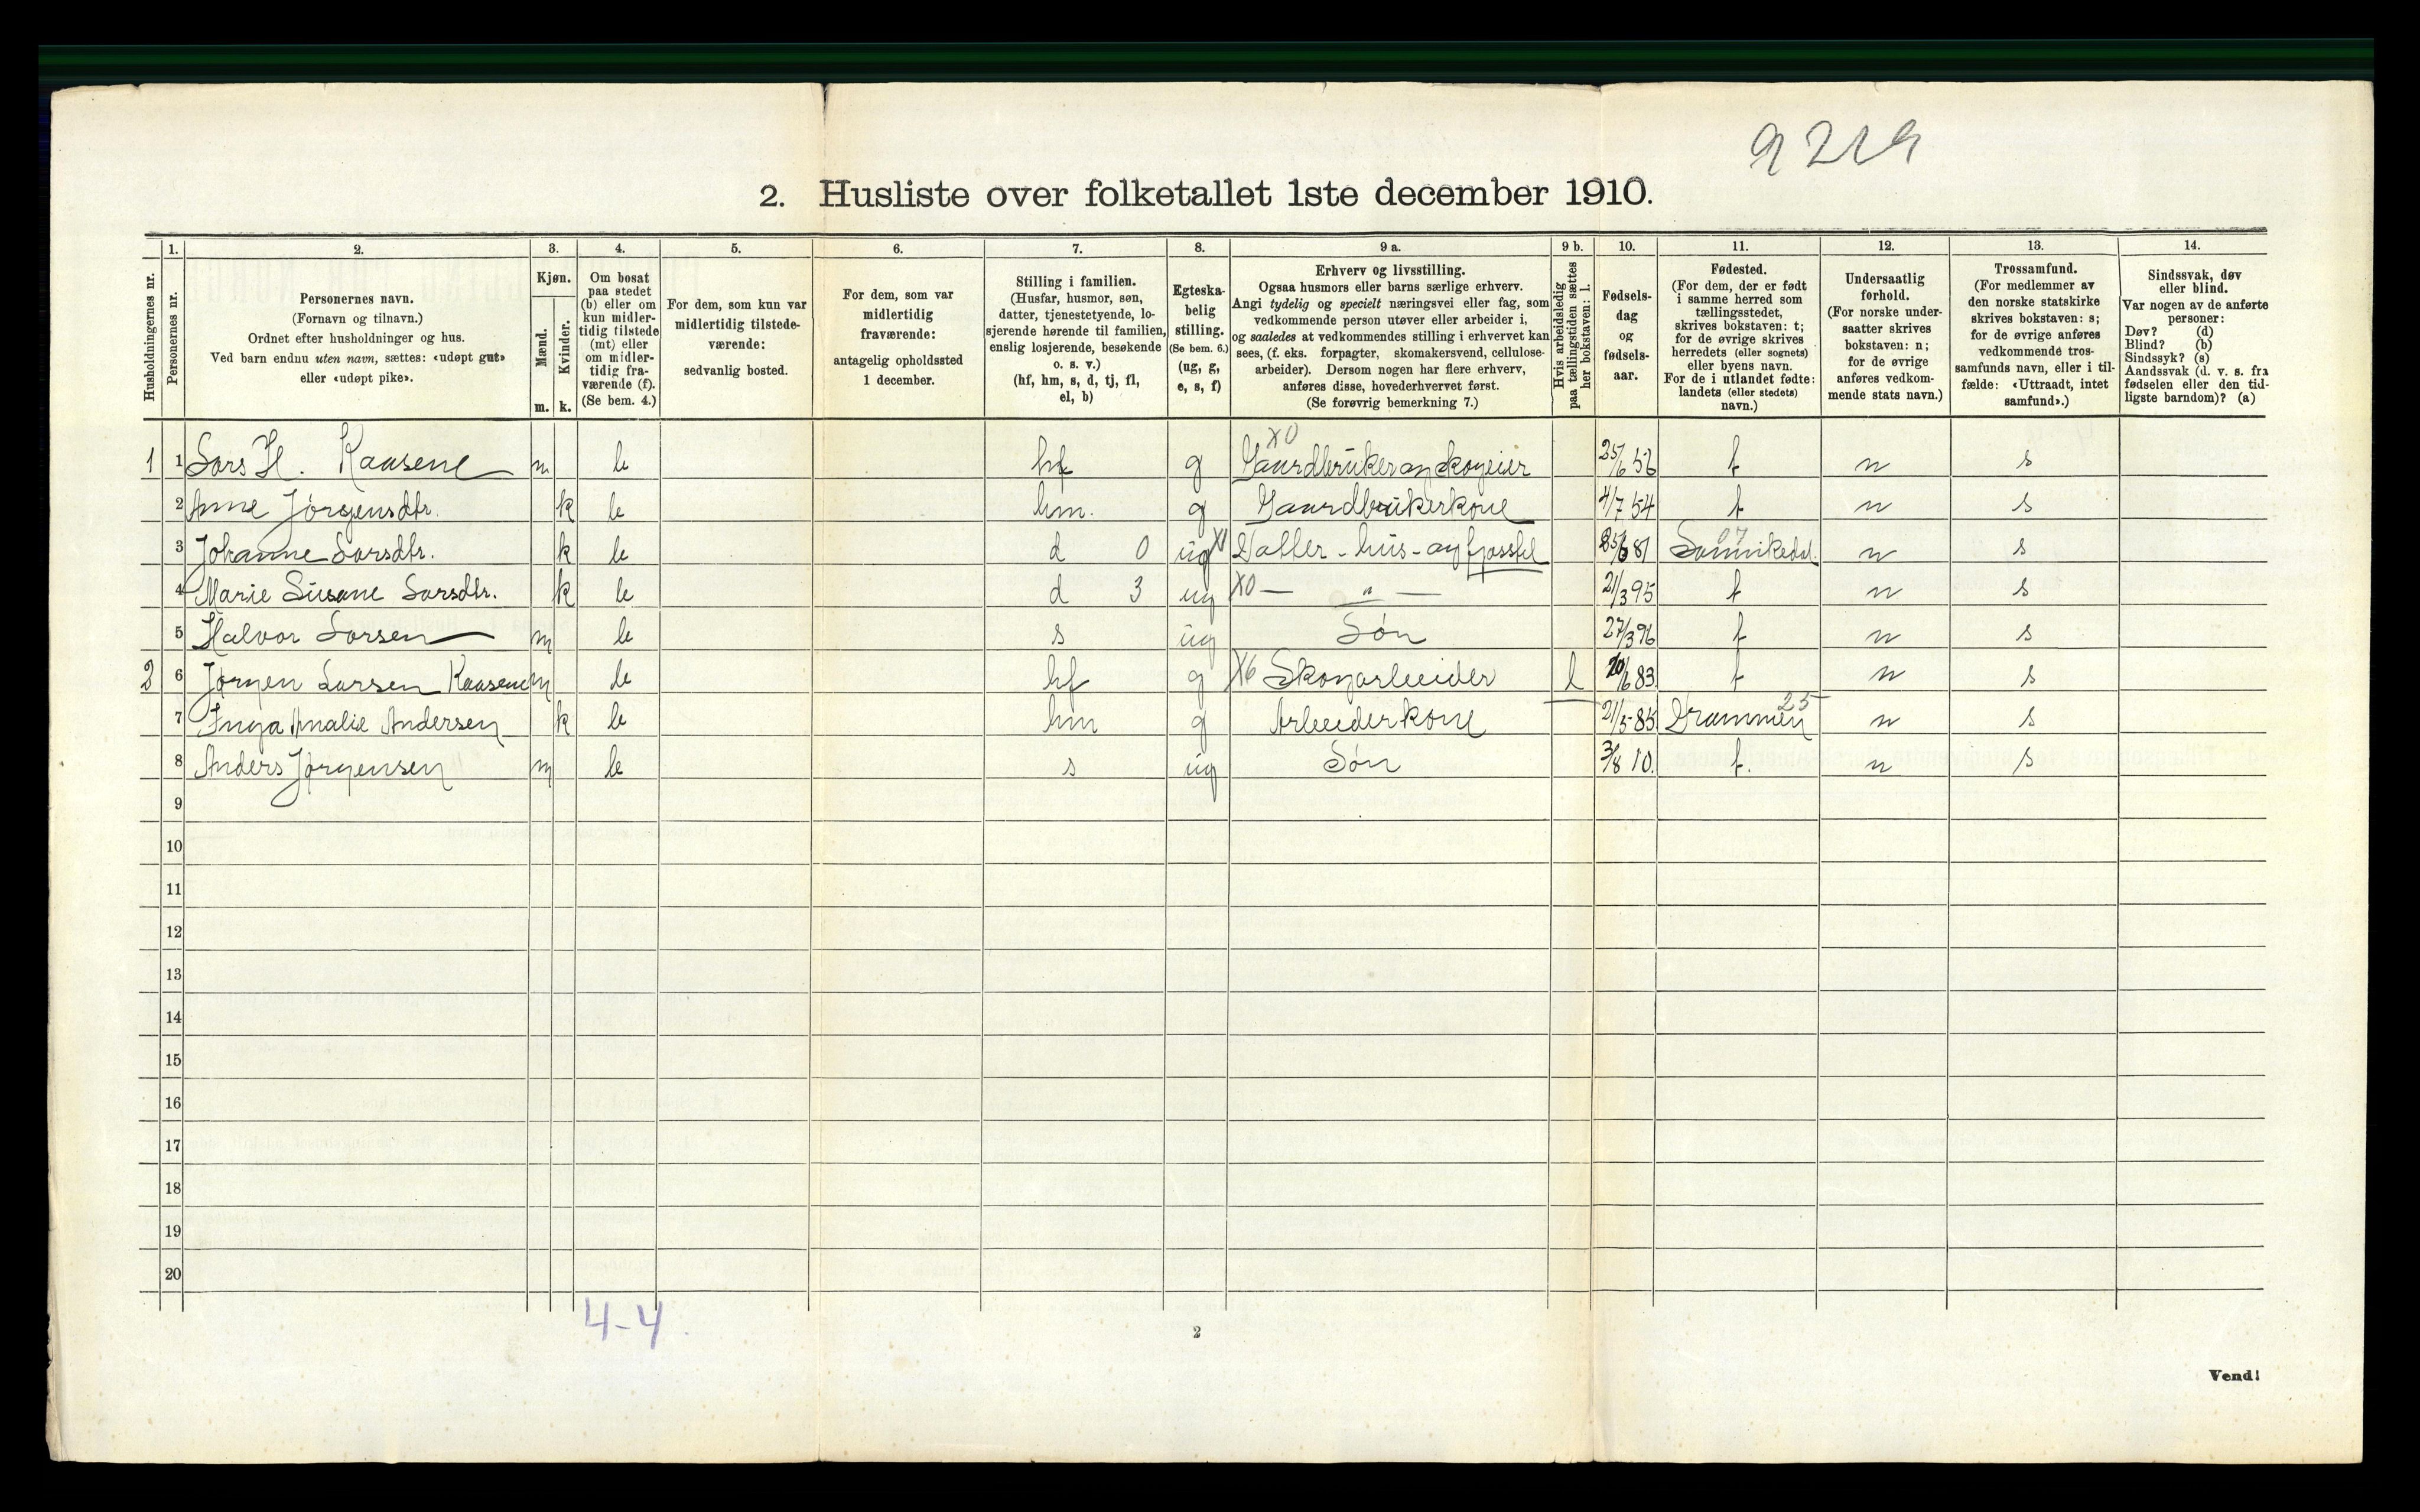 9219
2. Husliste over folketallet 1ste december 1910.
Husholdningernes nr.
1.
Personernes nr.
2.
Personernes navn.
(Fornavn og tilnavn.)
Ordnet efter husholdninger og hus.
Ved barn endnu uten navn, sættes: «udøpt gut»
eller «udøpt pike».
3.
Kjøn.
Mænd.
Kvinder.
m. k.
4.
Om bosat
paa stedet
(b) eller om
kun midler-
tidig tilstede
(mt) eller
om midler-
tidig fra-
værende (f).
(Se bem. 4.)
5.
For dem, som kun var
midlertidig tilstede-
værende:
sedvanlig bosted.
6.
For dem, som var
midlertidig
fraværende:
antagelig opholdssted
1 december.
7.
Stilling i familien.
(Husfar, husmor, søn,
datter, tjenestetyende, lo-
sjerende hørende til familien,
enslig losjerende, besøkende
o. s. v.)
(hf, hm, s, d, tj, fl,
el, b)
8.
Egteska-
belig
stilling.
(Se bem. 6.)
(ug, g,
e, s, f)
9 a.
Erhverv og livsstilling.
Ogsaa husmors eller barns særlige erhverv.
Angi tydelig og specielt næringsvei eller fag, som
vedkommende person utøver eller arbeider i,
og saaledes at vedkommendes stilling i erhvervet kan
sees, (f. eks. forpagter, skomakersvend, cellulose-
arbeider). Dersom nogen har flere erhverv,
anføres disse, hovederhvervet først.
(Se forøvrig bemerkning 7.)
9 b.
Hvis arbeidsledig
paa tællingstiden sættes
her bokstaven: l.
10.
Fødsels-
dag
og
fødsels-
aar.
11.
Fødested.
(For dem, der er født
i samme herred som
tællingsstedet,
skrives bokstaven: t;
for de øvrige skrives
herredets (eller sognets)
eller byens navn.
For de i utlandet fødte:
landets (eller stedets)
navn.)
12.
Undersaatlig
forhold.
(For norske under-
saatter skrives
bokstaven: n;
for de øvrige
anføres vedkom-
mende stats navn.)
13.
Trossamfund.
(For medlemmer av
den norske statskirke
skrives bokstaven: s;
for de øvrige anføres
vedkommende tros-
samfunds navn, eller i til-
fælde: «Uttraadt, intet
samfund».)
14.
Sindssvak, døv
eller blind.
Var nogen av de anførte
personer:
Døv? (d)
Blind? (b)
Sindssyk? (s)
Aandssvak (d. v. s. fra
fødselen eller den tid-
ligste barndom)? (a)
X0
1 1 Lars H. Kaasene m b hf g Gaardbruker og skogeier 25/6 56 t n s
2 Anne Jørgensdtr. k b hm. g Gaardbrukerkone 4/7 54 t n s
07
3 Johanne Larsdtr. k b d 0 ug X0 Datter - hus- og fjosstel 81 Sannikedal. n s
4 Marie Susane Larsdtr. k b d 3 ug X0 — " — 21/3 95 t n s
5 Halvor Larsen m b s ug Søn 27/3 96 t n s
2 6 Jørgen Larsen Kaasene m b hf g X6 Skogarbeider l 20/6 83. t n s
25
7 Inga Amalie Andersen k b hm g Arbeiderkone 21/5 85 Drammen n s
8 Anders Jørgensen m b s ug Søn 3/8 10. t. n s
9
10
11
12
13
14
15
16
17
18
19
20
4-4.
2
Vend!